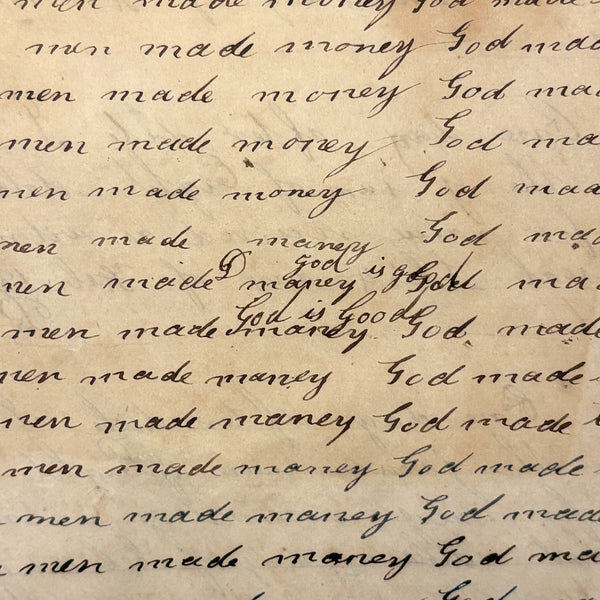 men made money God made
men made money God mad
men made money God mad
men made money God ma
men made money God maa
men made maney God mad
D god is god
men made maney God mad
God is Good
men made maney God made
men made maney God made
men made maney God made
men made maney God made
men made maney God made
men made money God ma
God